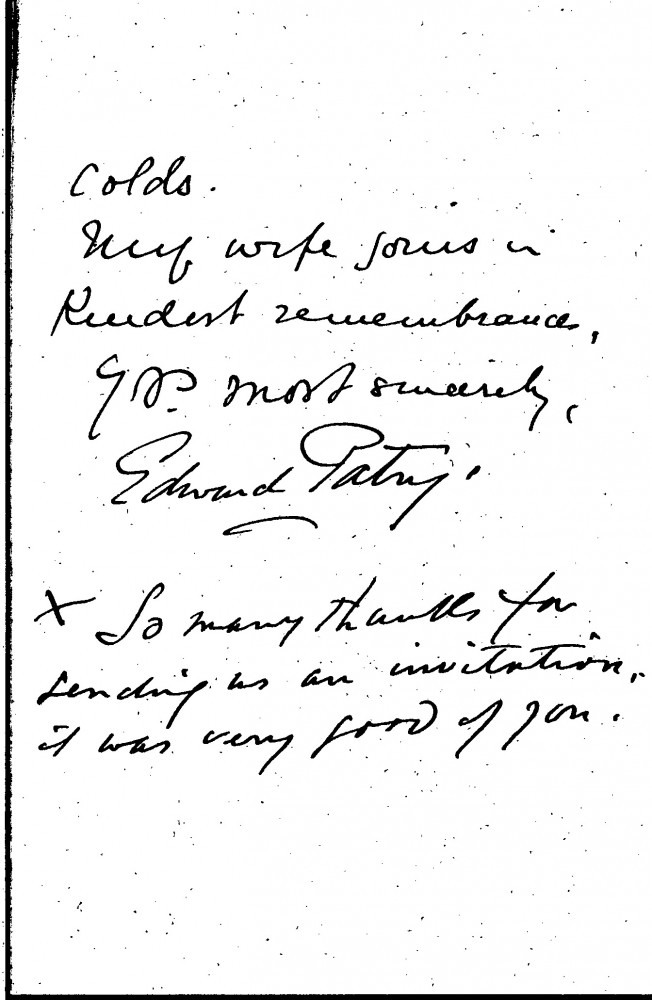 colds.
My wife joins in
Kindest remembrances,
Yrs. most sincerely,
Edward Patry.
x So many thanks for
sending us an invitation,
it was very good of you.